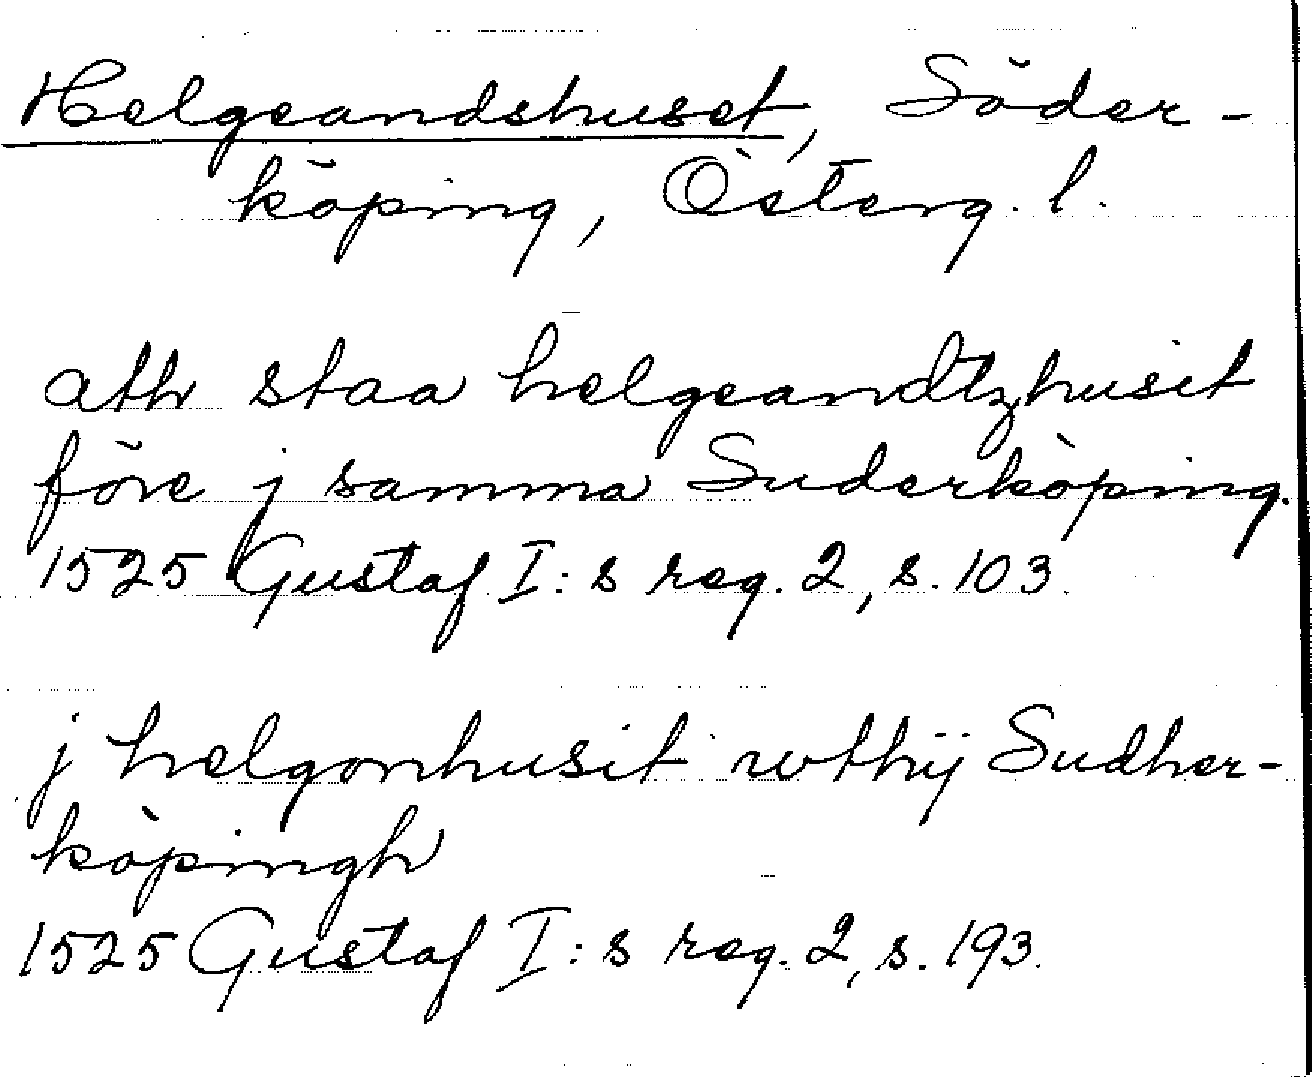 Helgeandshuset, Söder-
köping, Österg. l.
ath staa helgeandtzhusit
före j samma Suderköping.
1525 Gustaf I:s reg. 2, s. 103.
j helgonhusit wthij Sudher-
köpingh
1525 Gustaf I:s reg. 2, s. 193.